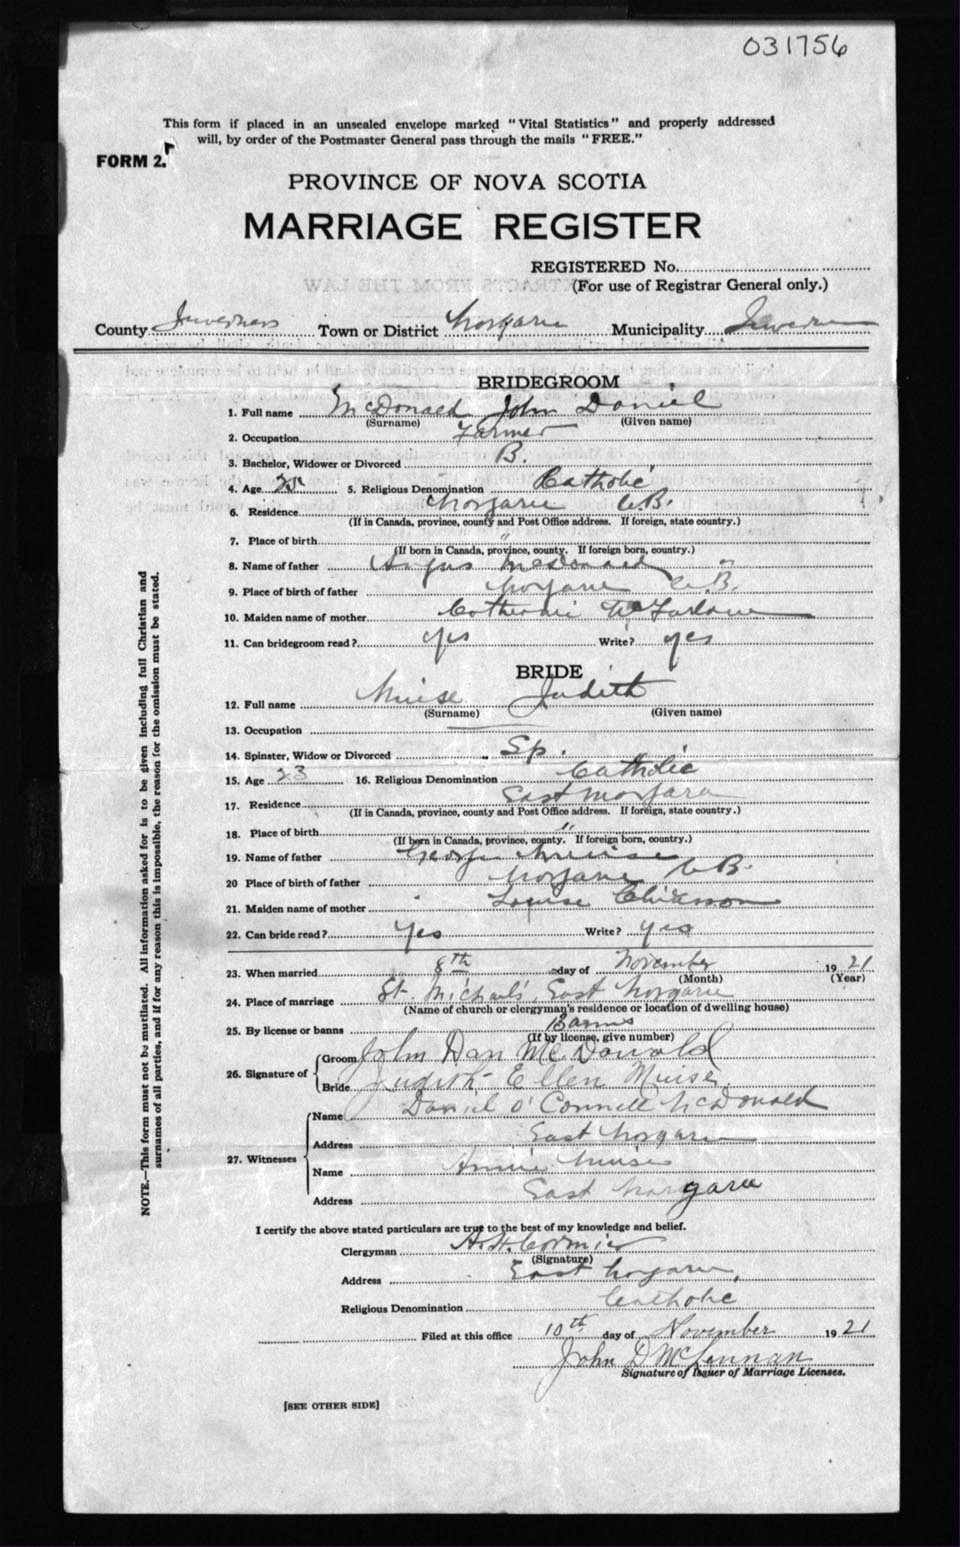 031756
This form if placed in an unsealed envelope marked "Vital Statistics" and properly addressed
will, by order of the Postmaster General pass through the mails "FREE."
FORM 2.
PROVINCE OF NOVA SCOTIA
MARRIAGE REGISTER
REGISTERED No.
(For use of Registrar General only.)
County Inverness Town or District Margaree Municipality Inverness
BRIDEGROOM
1. Full name McDonald John Daniel
(Surname) (Given name)
2. Occupation Farmer
3. Bachelor, Widower or Divorced B.
4. Age 25 5. Religious Denomination Catholic
6. Residence Margaree C.B.
(If in Canada, province, county and Post Office address. If foreign, state country.)
7. Place of birth "
(If born in Canada, province, county. If foreign born, country.)
8. Name of father Angus McDonald
9. Place of birth of father Margaree C.B.
10. Maiden name of mother Catherine McFarlane
11. Can bridegroom read? yes Write? yes
BRIDE
12. Full name Muise Judith
(Surname) (Given name)
13. Occupation
14. Spinster, Widow or Divorced Sp.
15. Age 23 16. Religious Denomination Catholic
17. Residence East Margaree
(If in Canada, province, county and Post Office address. If foreign, state country.)
18. Place of birth "
(If born in Canada, province, county. If foreign born, country.)
19. Name of father George Muise
20 Place of birth of father Margaree C.B.
21. Maiden name of mother Louise Chiasson
22. Can bride read? Yes Write? yes
23. When married 8th day of November 1921
(Month) (Year)
24. Place of marriage St. Michael's, East Margaree
(Name of church or clergyman's residence or location of dwelling house)
25. By license or banns Banns
(If by license, give number)
26. Signature of Groom John Dan McDonald
Bride Judith Ellen Muise
27. Witnesses Name Daniel O'Connell McDonald
Address East Margaree
Name Annie Muise
Address East Margaree
I certify the above stated particulars are true to the best of my knowledge and belief.
Clergyman A. H. Cormier
(Signature)
Address East Margaree,
Religious Denomination Catholic
Filed at this office 10th day of November 1921
John D McLennan
Signature of Issuer of Marriage Licenses.
[SEE OTHER SIDE]
NOTE.—This form must not be mutilated. All information asked for is to be given including full Christian and
surnames of all parties, and if for any reason this is impossible, the reason for the omission must be stated.